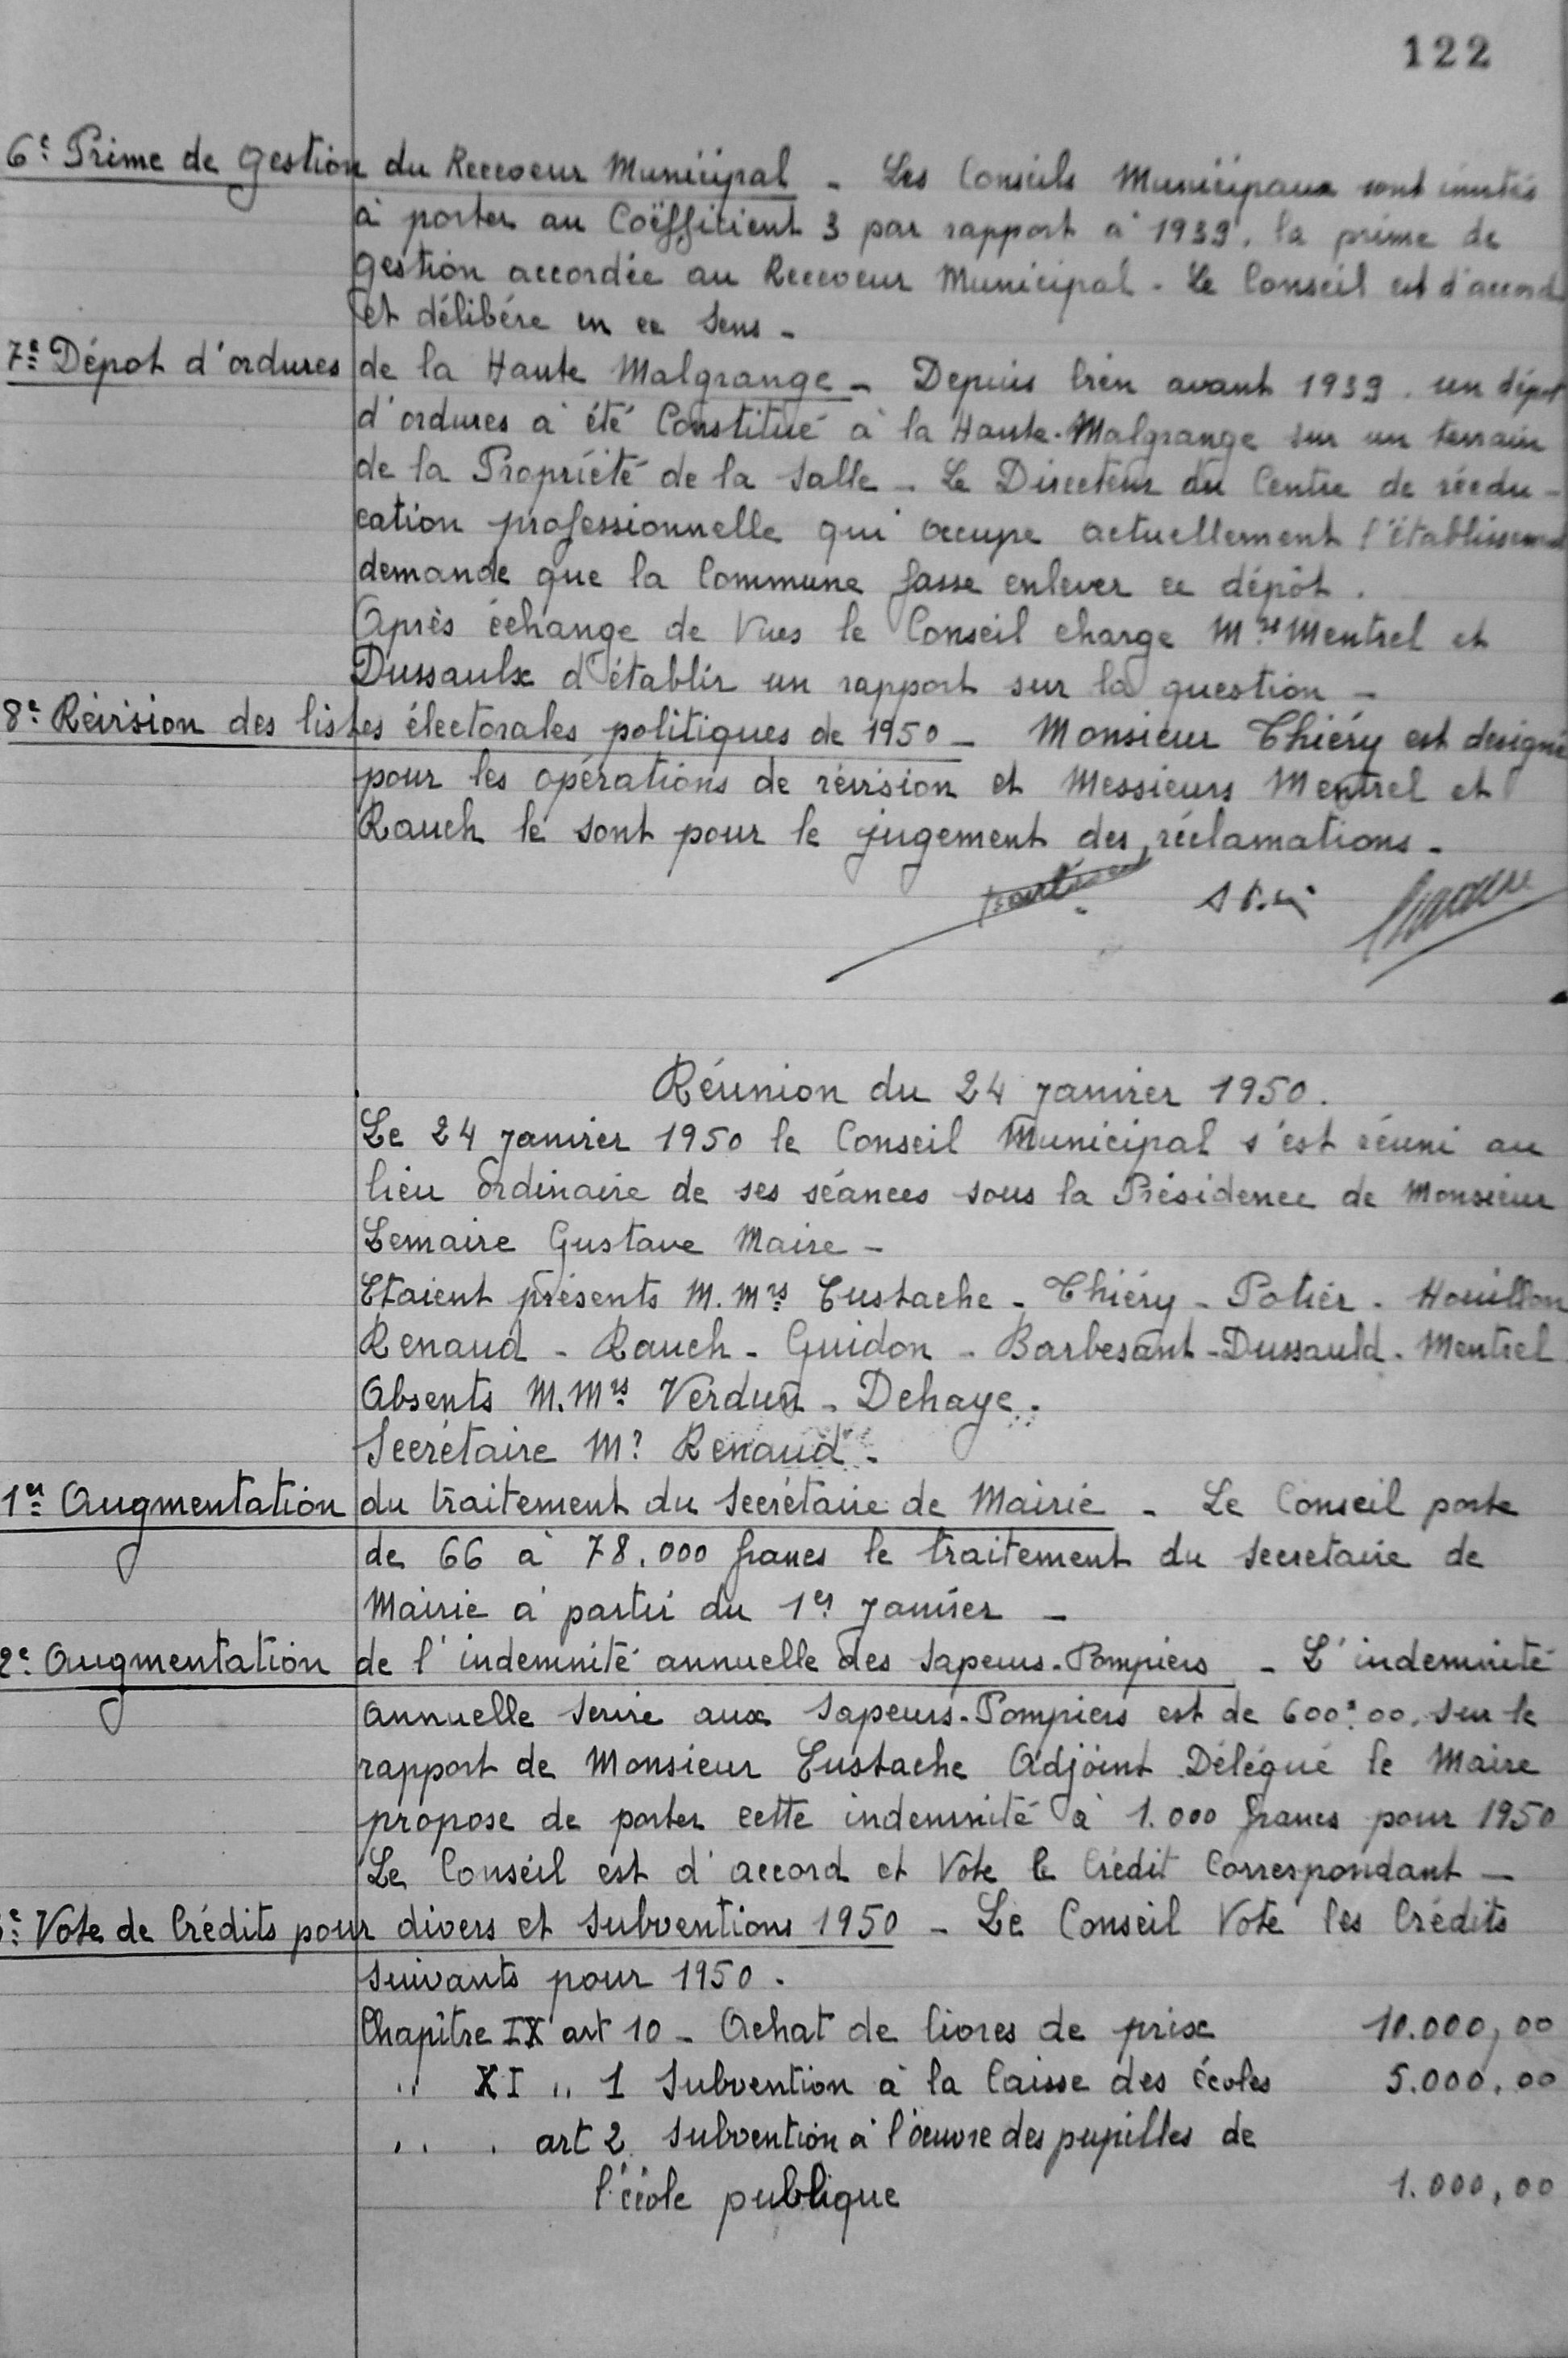 122
6e: Prime de gestion du Receveur Municipal - Les Conseils Municipaux sont invités
à porter au Coëfficient 3 par rapport à 1939, la prime de
gestion accordée au Receveur Municipal. Le Conseil est d'accord
et délibére en ce sens -
7e: Dépot d'ordures de la Haute Malgrange - Depuis bien avant 1939. un dépot
d'ordures à été Constitué à la Haute-Malgrange sur un terrain
de la Propriété de la Salle - Le Directeur du Centre de réédu-
cation professionnelle qui occupe actuellement l'établissement
demande que la Commune fasse enlever ce dépôt.
Après échange de Vues le Conseil charge Mrs Mentrel et
Dussaulx d'établir un rapport sur la question -
8e: Révision des listes électorales politiques de 1950 - Monsieur Thiéry est designé
pour les opérations de révision et Messieurs Mentrel et
Rauch le sont pour le jugement des réclamations.
Réunion du 24 Janvier 1950.
Le 24 Janvier 1950 le Conseil Municipal s'est réuni au
lieu ordinaire de ses séances sous la Présidence de Monsieur
Lemaire Gustave Maire -
Etaient présents M.Mrs Eustache - Thiéry - Potier - Houillon
Renaud - Rauch - Guidon - Barbesant - Dussauld - Mentrel
Absents M.Mrs Verdun - Dehaye.
Secrétaire Mr Renaud -
1er: Augmentation du traitement du Secrétaire de Mairie - Le Conseil porte
de 66 à 78.000 francs le traitement du secretaire de
Mairie à partir du 1er Janvier -
2e: Augmentation de l'indemnité annuelle des Sapeurs-Pompiers - L'indemnité
annuelle servie aux Sapeurs-Pompiers est de 600f.00. sur le
rapport de Monsieur Eustache Adjoint Délégué le Maire
propose de porter cette indemnité à 1.000 francs pour 1950
Le Conseil est d'accord et Vote le Crédit Correspondant -
e: Vote de Crédits pour divers et Subventions 1950 - Le Conseil Vote les Crédits
Suivants pour 1950.
Chapître IX art 10 - Achat de livres de prix 10.000,00
" XI " 1 Subvention à la Caisse des écoles 5.000,00
" " art 2 Subvention à l'oeuvre des pupilles de
l'école publique 1.000,00